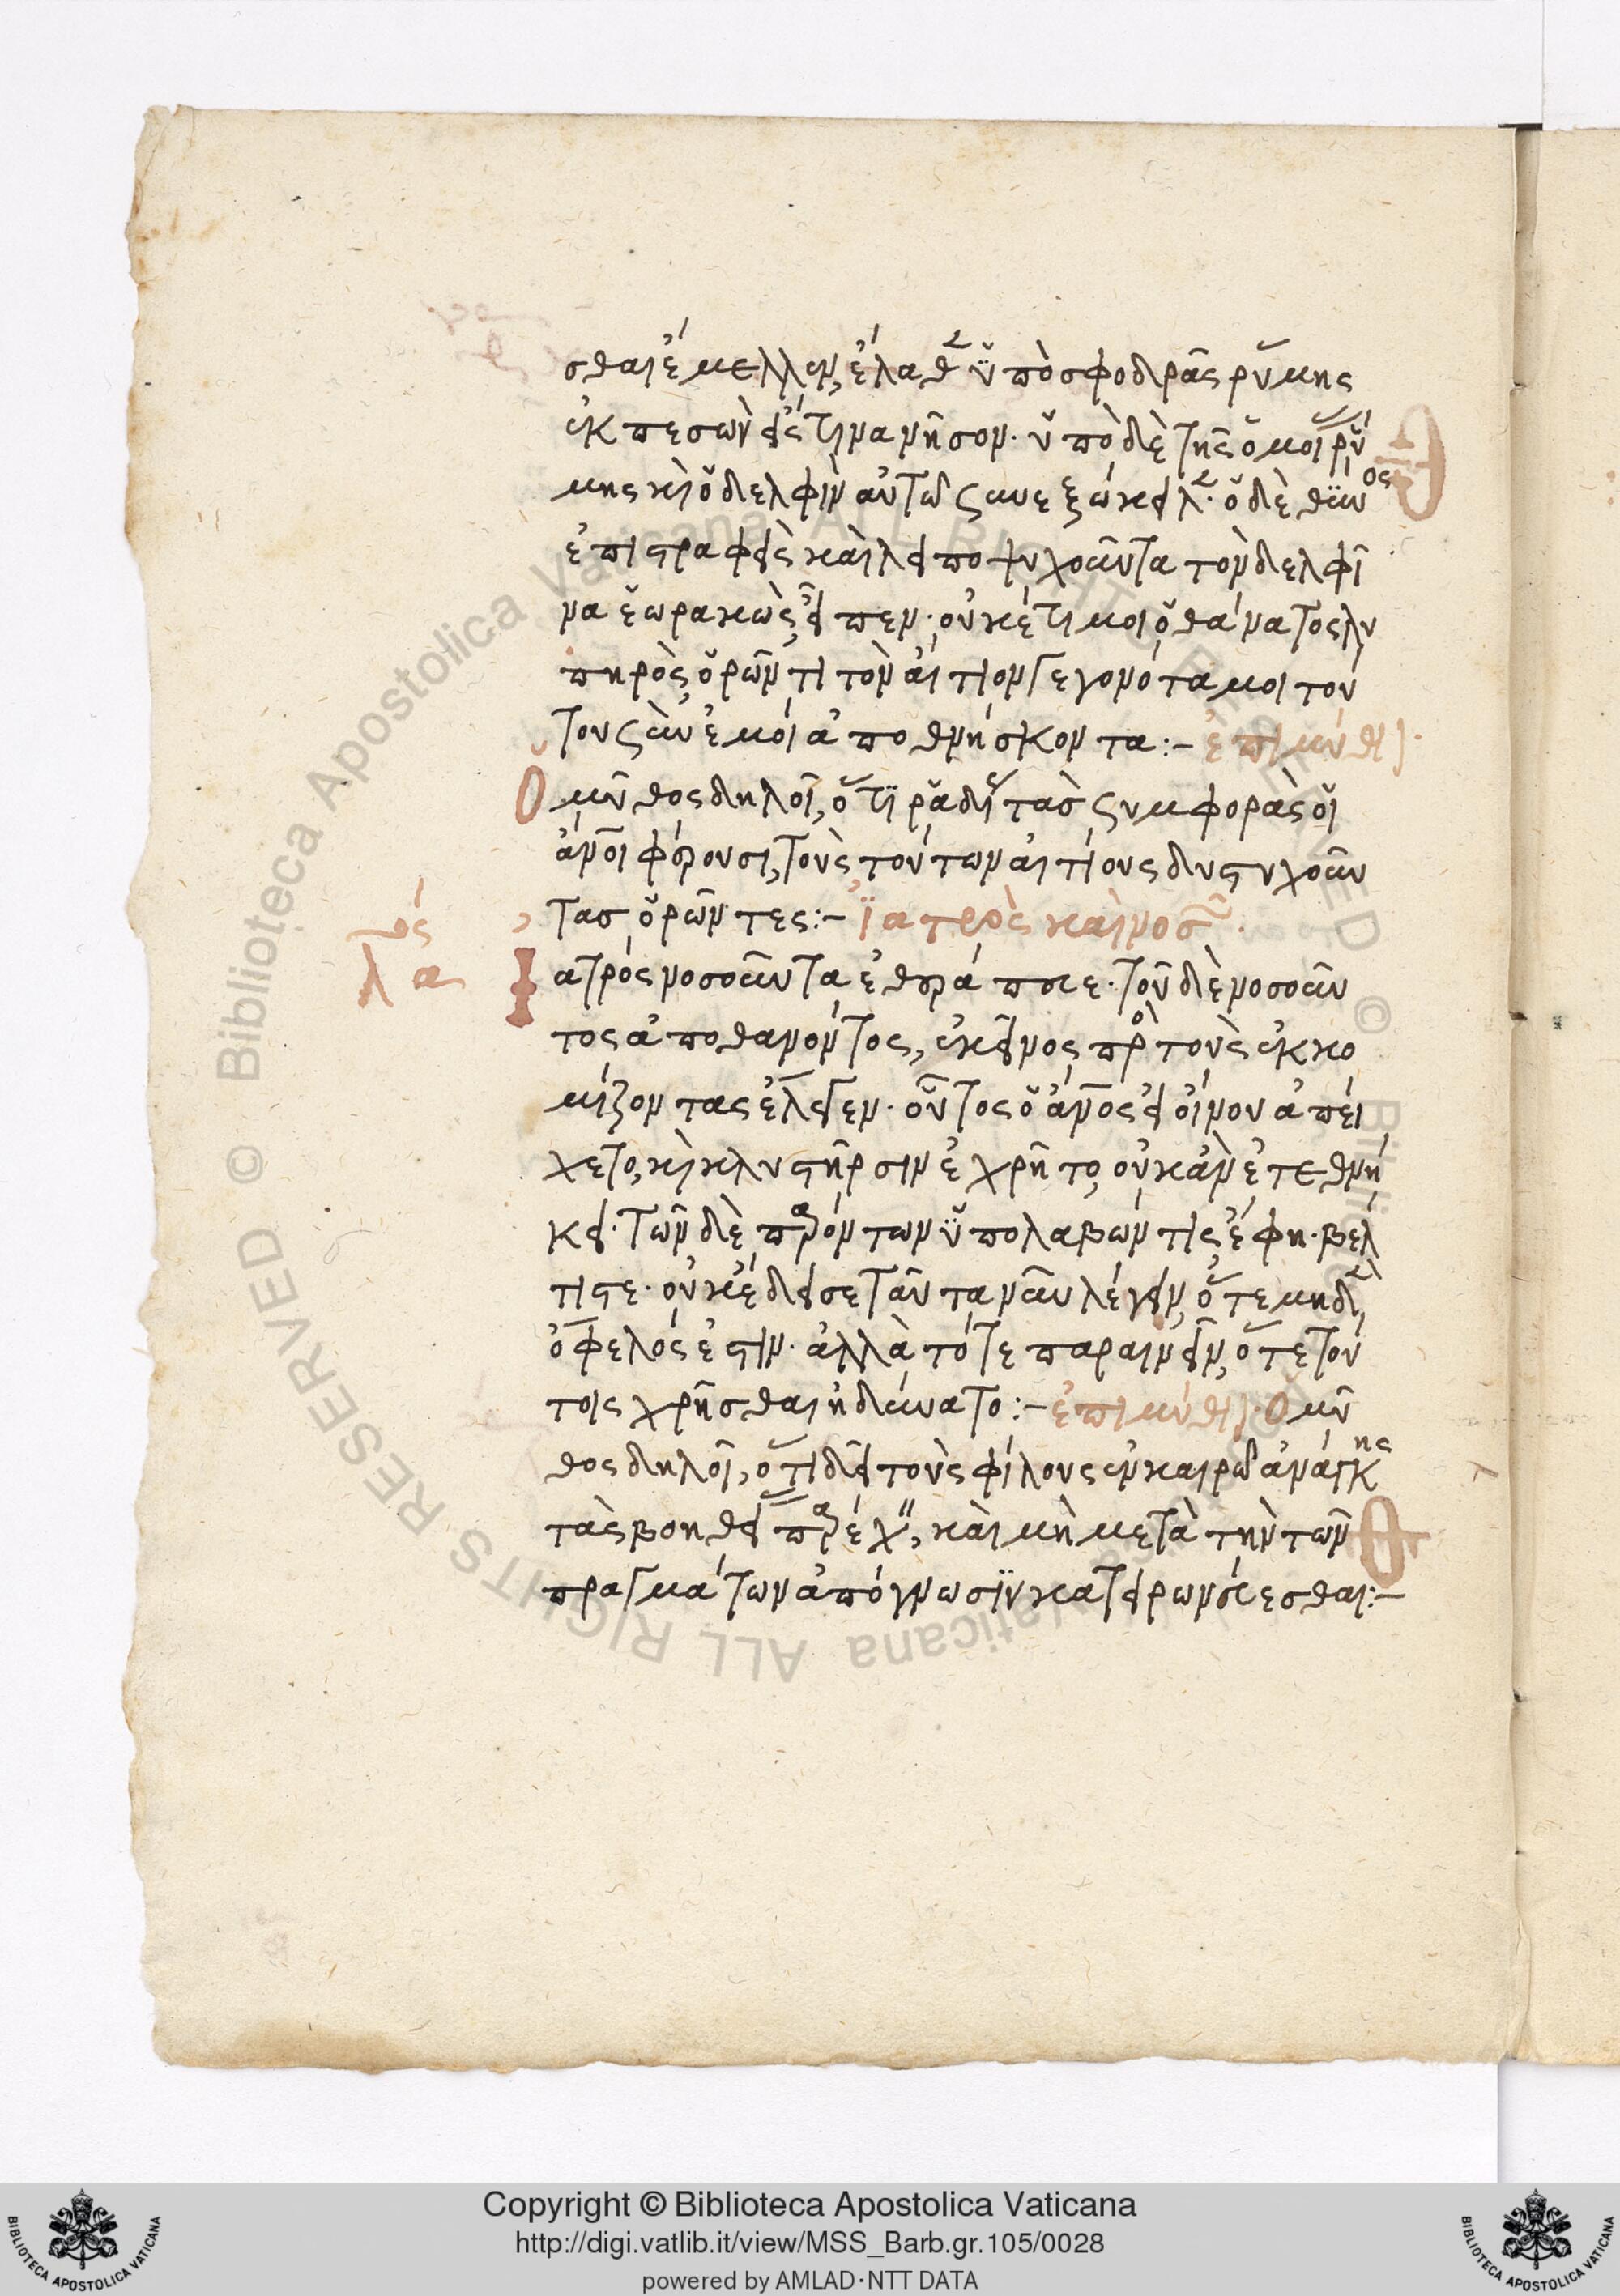 σθαι ἔμελλεν, ἔλαθεν ὑπὸ σφοδρᾶς ῥύμης
ἐκπεσὼν εἴς τινα νῆσον· ὑπὸ δὲ τῆς ὁμοίας ῥύ
μης κὶ ὁ δελφὶν αὐτῷ συνεξώκειλεν. ὁ δὲ θύννος
ἐπιστραφεὶς καὶ λειποψυχοῦντα τὸν δελφῖ
να ἑωρακὼς, εἶπεν· οὐκέτι μοι ὁ θάνατος λυ
πηρὸς, ὁρῶντι τὸν αἴτιον γεγονότα μοι τού
του σὺν ἐμοί ἀποθνήσκοντα:- ἐπιμύθι.
Ὁ μῦθος δηλοῖ, ὅτι ῥᾳδίως τὰς συμφορὰς οἱ
ἄνοι φέρουσι, τοὺς τούτων αἰτίους δυστυχοῦν
τας ὁρῶντες:- ἰατρὸς καὶ νοσῶν.
λόγος λα
Ἰατρός νοσοῦντα ἐθεράπευε· τοῦ δὲ νοσοῦν
τος ἀποθανόντος, ἐκεῖνος πρὸς τοὺς ἐκκο
μίζοντας ἔλεγεν. οὗτος ὁ ἄνος εἰ οἴνου ἀπεί
χετο, κὶ κλυστῆρσιν ἐχρῆτο, οὐκ ἂν ἐτεθνή
κει. τῶν δὲ παρόντων ὑπολαβών τις ἔφη. βέλ
τιστε. οὐκ ἔδει σε ταῦτα νῦν λέγειν, ὅτε μηδὲν
ὄφελός ἐστιν. ἀλλὰ τότε παραινεῖν, ὅτε τού
τοις χρῆσθαι ἠδύνατο:- ἐπιμύθι. Ὁ μῦ
θος δηλοῖ, ὅτι δεῖ τοὺς φίλους ἐν καιρῷ ἀνάγκης
τὰς βοηθείας παρέχειν, καὶ μὴ μετὰ τὴν τῶν
πραγμάτων ἀπόγνωσιν κατειρωνεύεσθαι:-
Copyright © Biblioteca Apostolica Vaticana
http://digi.vatlib.it/view/MSS_Barb.gr.105/0028
powered by AMLAD·NTT DATA
BIBLIOTECA APOSTOLICA VATICANA
BIBLIOTECA APOSTOLICA VATICANA